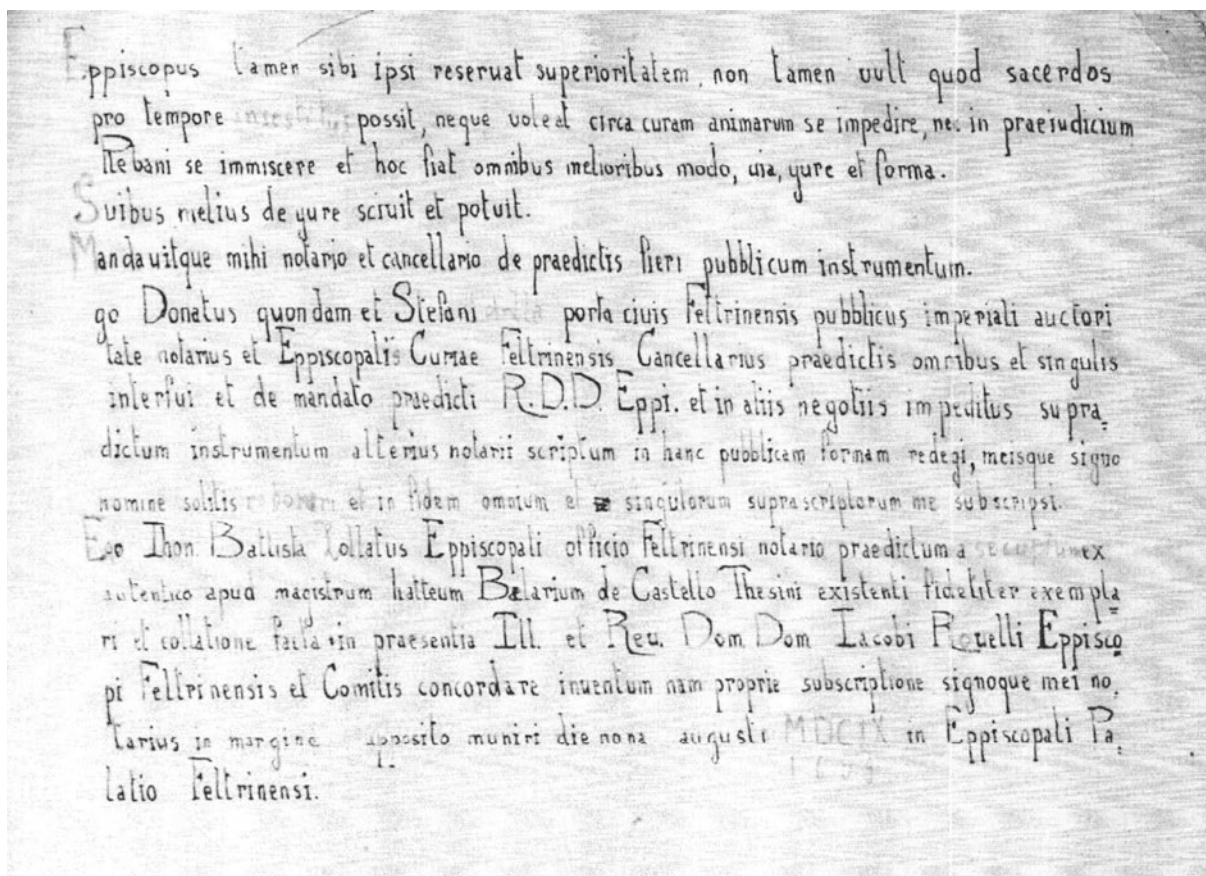 Eppiscopus tamen sibi ipsi reseruat superioritatem, non tamen uult quod sacerdos
pro tempore possit, neque uoleat circa curam animarum se impedire, nec in praeiudicium
Plebani se immiscere et hoc fiat omnibus melioribus modo, uia, yure et forma.
Suibus melius de yure sciuit et potuit.
Mandauitque mihi notario et cancellario de praedictis fieri pubblicum instrumentum.
go Donatus quondam et Stefani porta ciuis Feltrinensis pubblicus imperiali auctori
tate notarius et Eppiscopalis Curiae Feltrinensis Cancellarius praedictis omnibus et singulis
interfui et de mandato praedicti R.D.D. Eppi. et in aliis negotiis impeditus supra=
dictum instrumentum alterius notarii scriptum in hanc pubblicam formam redegi, meisque signo
nomine solitis et in fidem omnium et singulorum suprascriptorum me subscripsi.
Ego Ihon. Battista Eppiscopali officio Feltrinensi notario praedictum a ex
autentico apud magistrum Balarium de Castello Thesini existenti fideliter exempla=
ri et collatione facta in praesentia Ill. et Reu. Dom. Dom Iacobi Rouelli Eppisco=
pi Feltrinensis et Comitis concordare inuentum nam proprie subscriptione signoque mei no=
tarius in margine apposito muniri die nona augusti MDCIX in Eppiscopali Pa=
latio Feltrinensi.